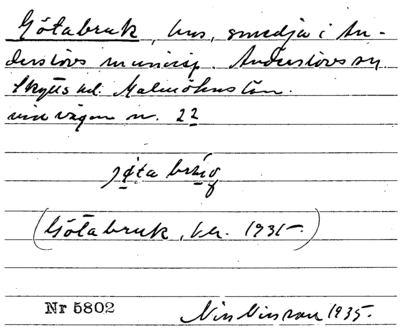 Götabruk, hus, smedja i An-
derslövs municip. Anderslövs sn
Skytts hd. Malmöhus län.
vid vägen nr. 22
(Götabruk, kr. 1935)
Nr 5802
Nils Nilsson 1935.